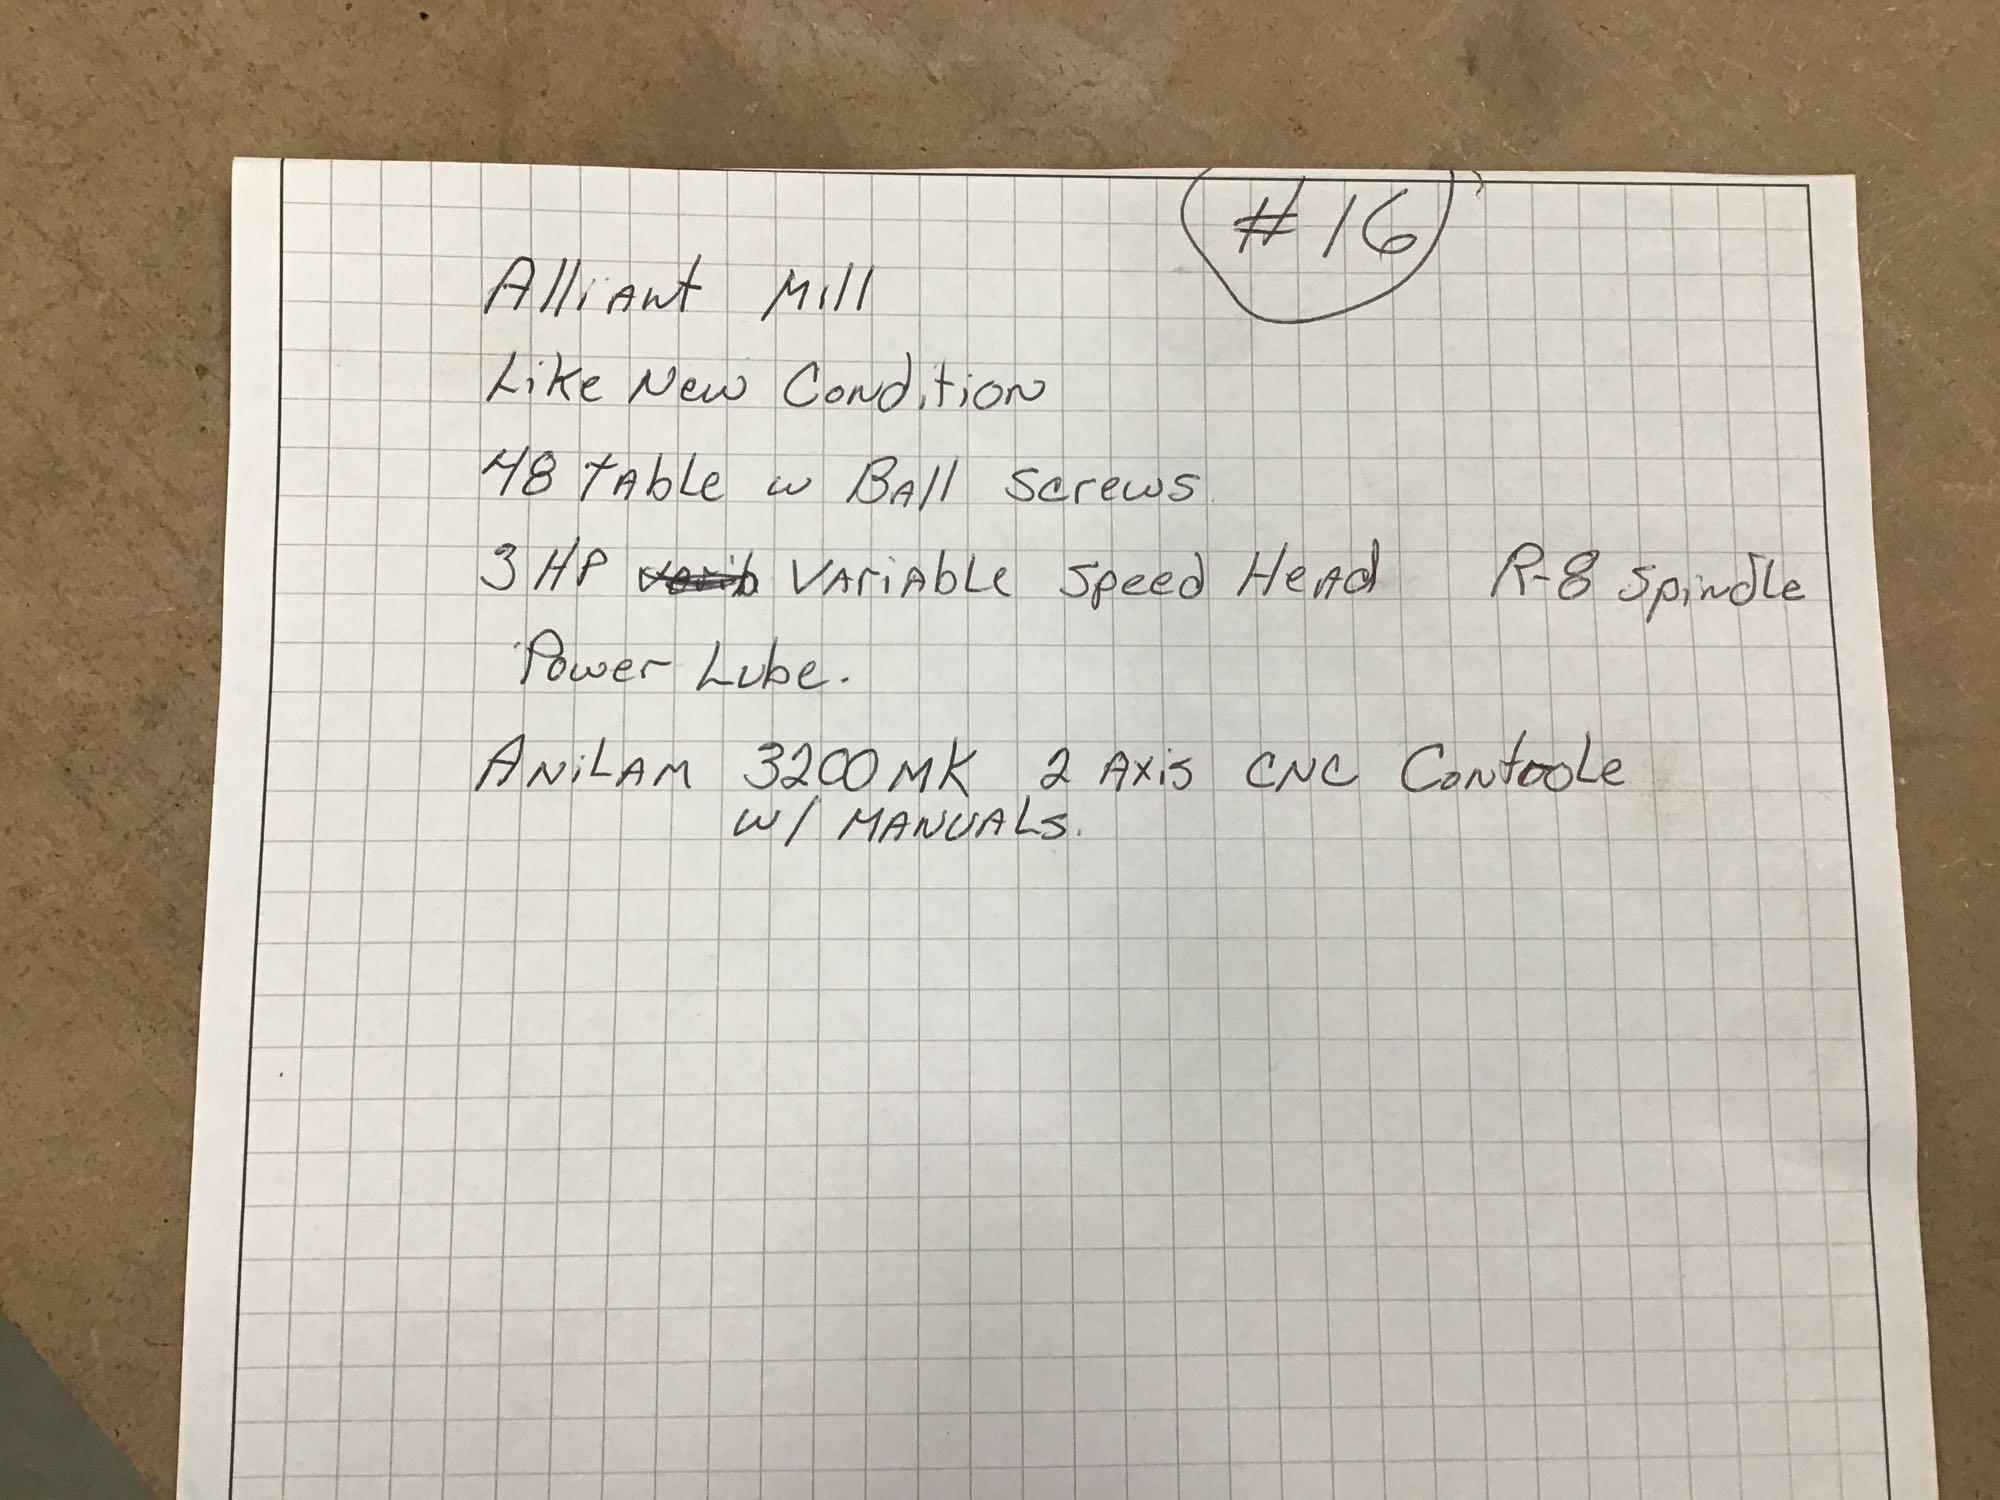 #16
Alliant Mill
Like New Condition
48 Table w Ball Screws
3 HP Variable Speed Head R-8 Spindle
Power Lube.
Anilam 3200MK 2 Axis CNC Controle
w/ MANUALS.